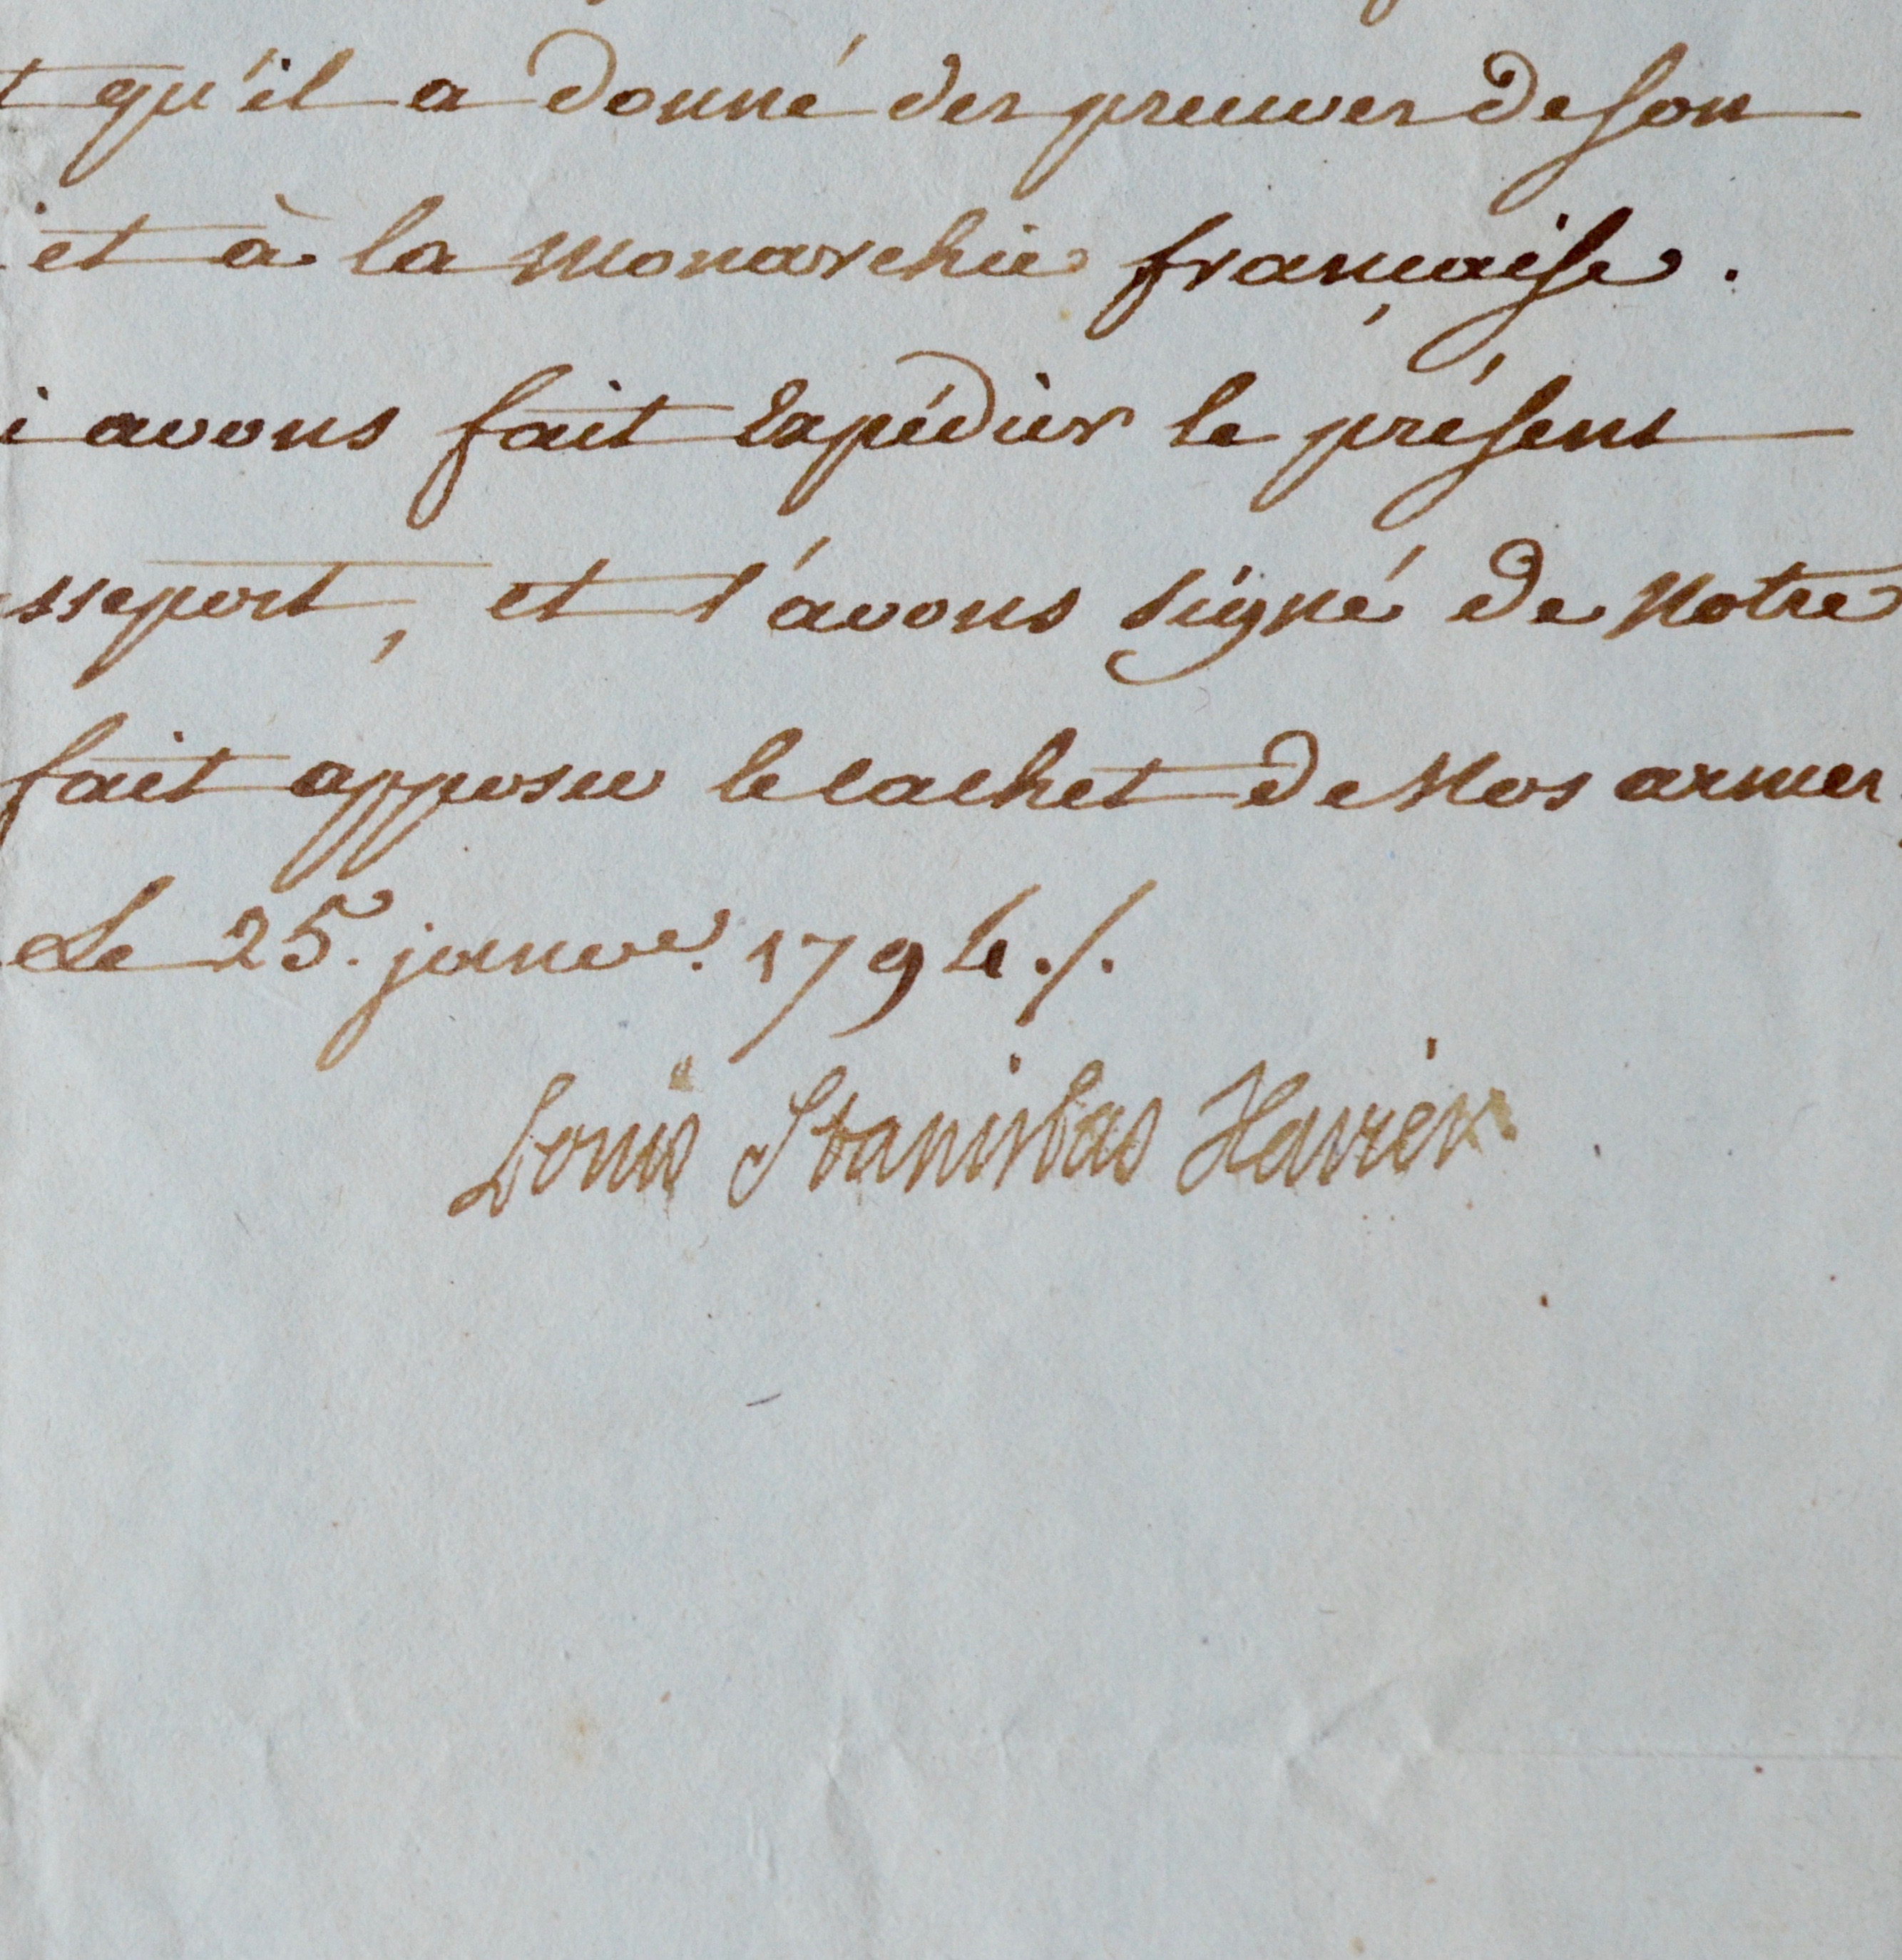 t qu'il a donné des preuves de son
et à la Monarchie française.
i avons fait Expédier le présent
sseport, et l'avons signé de Notre
fait apposer le cachet de Nos armes
Le 25. janve. 1794./.
Louis Stanislas Xavier